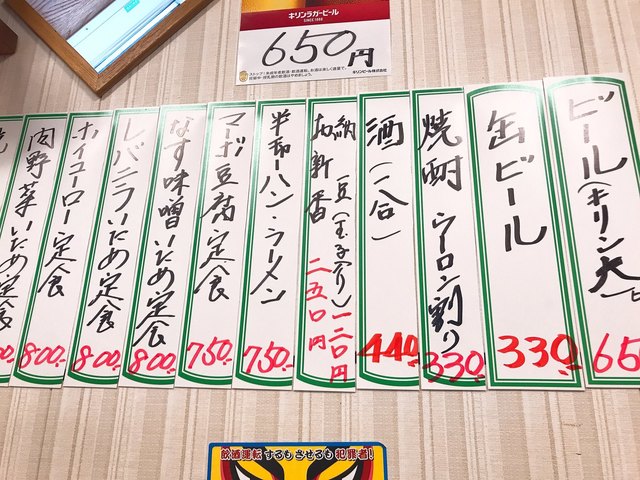 キリンラガービール
SINCE 1888
650円
キリンビール株式会社
ビール(キリン大ビ
65
缶ビール
330.-
焼酎 ウーロン割り
330.-
酒(一合)
440.-
納豆(玉子入り)一二〇円
お新香 二五〇円
半チャーハン・ラーメン
750.-
マーボ豆腐定食
750.-
なす味噌いため定食
800.-
レバニラいため定食
800.-
ホイコーロー定食
800.-
肉野菜いため定食
800.-
飲酒運転するもさせるも犯罪者!